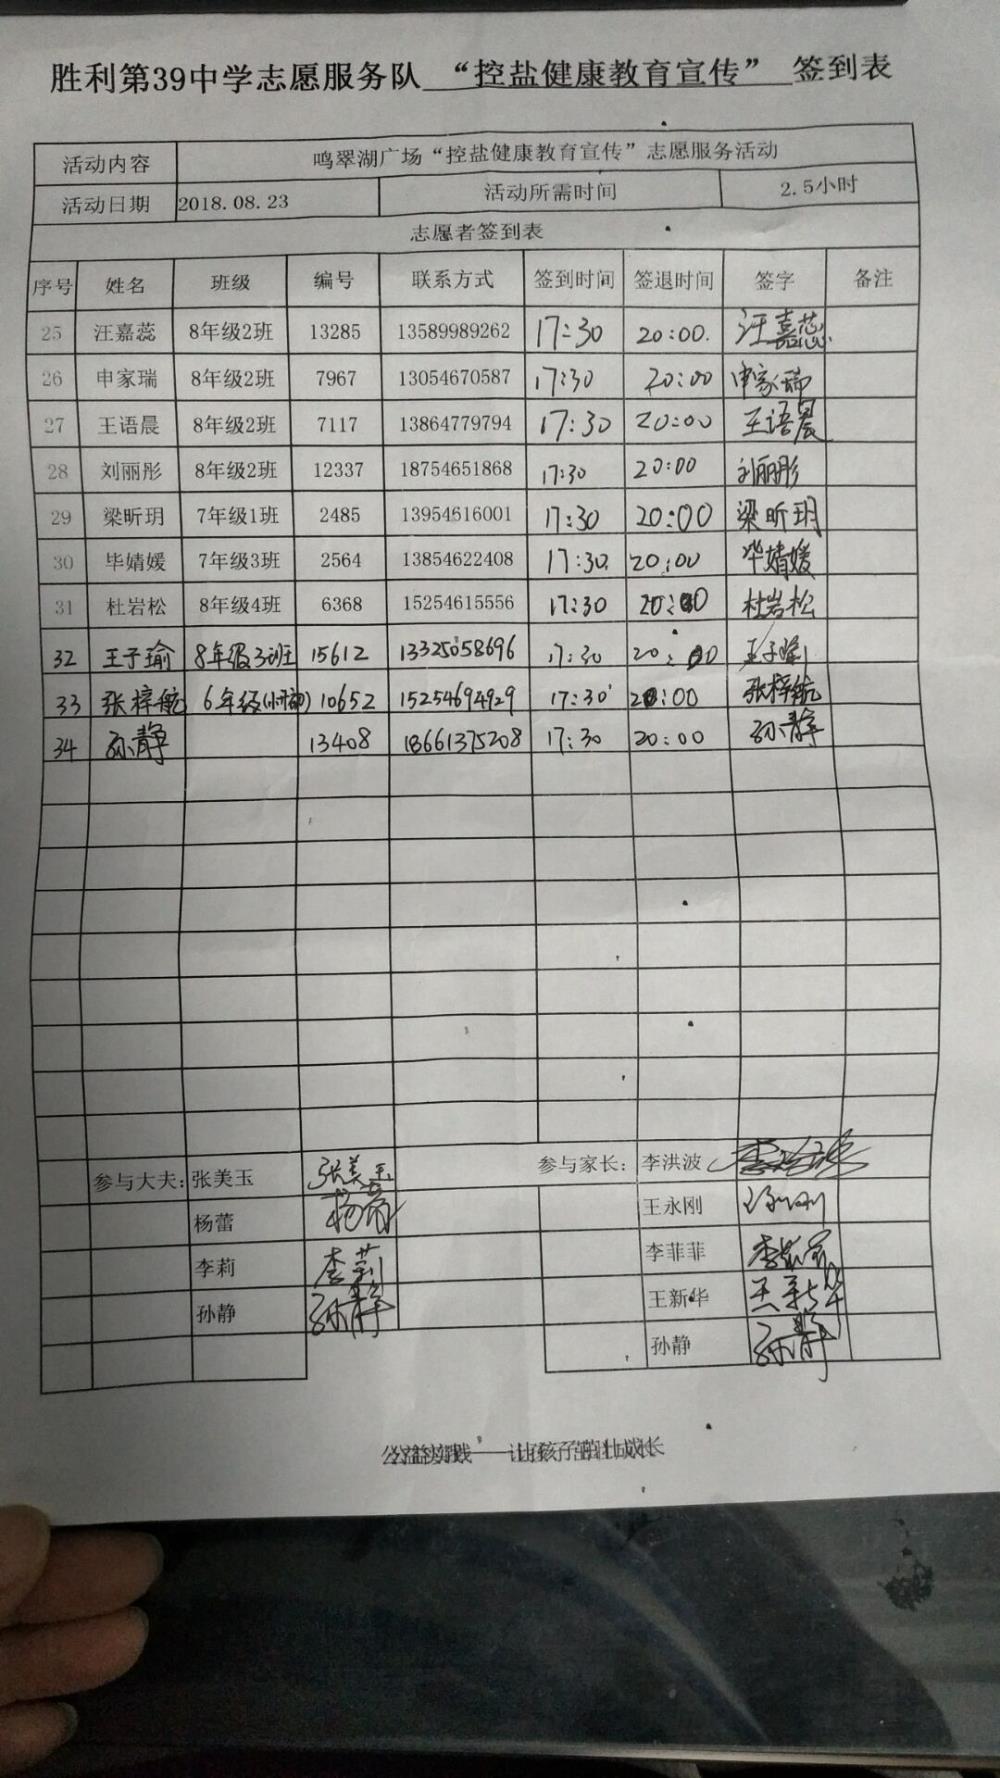 胜利第39中学志愿服务队 “控盐健康教育宣传” 签到表
活动内容 鸣翠湖广场“控盐健康教育宣传”志愿服务活动
活动日期 2018.08.23 活动所需时间 2.5小时
志愿者签到表
序号 姓名 班级 编号 联系方式 签到时间 签退时间 签字 备注
25 汪嘉蕊 8年级2班 13285 13589989262 17:30 20:00. 汪嘉蕊
26 申家瑞 8年级2班 7967 13054670587 17:30 20:00 申家瑞
27 王语晨 8年级2班 7117 13864779794 17:30 20:00 王语晨
28 刘丽彤 8年级2班 12337 18754651868 17:30 20:00 刘丽彤
29 梁昕玥 7年级1班 2485 13954616001 17:30 20:00 梁昕玥
30 毕婧媛 7年级3班 2564 13854622408 17:30. 20:00 毕婧媛
31 杜岩松 8年级4班 6368 15254615556 17:30 20:00 杜岩松
32 王子瑜 8年级3班 15612 13325058696 17:30 20:00 王子瑜
33 张梓航 6年级 10652 15254694929 17:30 20:00 张梓航
34 孙静 13408 18661375208 17:30 20:00 孙静
参与大夫: 张美玉 张美玉 参与家长: 李洪波
杨蕾 杨蕾 王永刚 王永刚
李莉 李莉 李菲菲
孙静 孙静 王新华 王新华
孙静 孙静
公益实践——让孩子茁壮成长